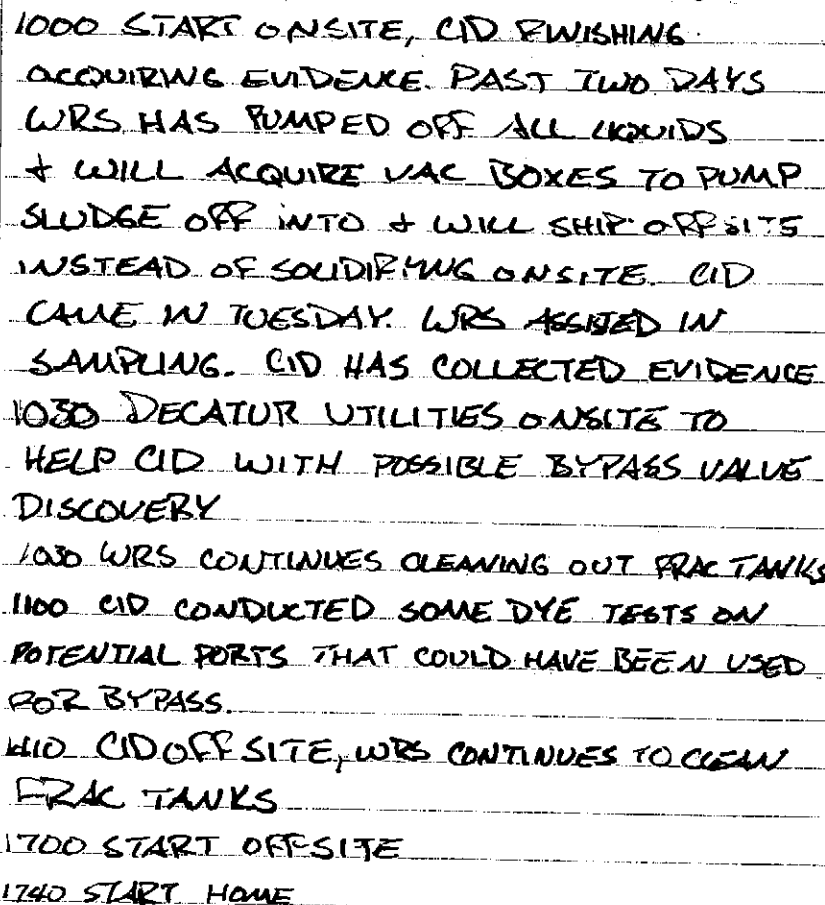 1000 START ONSITE, CID FINISHING
ACQUIRING EVIDENCE. PAST TWO DAYS
WRS HAS PUMPED OFF ALL LIQUIDS
+ WILL ACQUIRE VAC BOXES TO PUMP
SLUDGE OFF INTO + WILL SHIP OFFSITE
INSTEAD OF SOLIDIFYING ONSITE. CID
CAME IN TUESDAY. WRS ASSISTED IN
SAMPLING. CID HAS COLLECTED EVIDENCE
1030 DECATUR UTILITIES ONSITE TO
HELP CID WITH POSSIBLE BYPASS VALVE
DISCOVERY
1030 WRS CONTINUES CLEANING OUT FRAC TANKS
1100 CID CONDUCTED SOME DYE TESTS ON
POTENTIAL PORTS THAT COULD HAVE BEEN USED
FOR BYPASS.
CID OFFSITE, WRS CONTINUES TO CLEAN
FRAC TANKS
1700 START OFFSITE
1740 START HOME